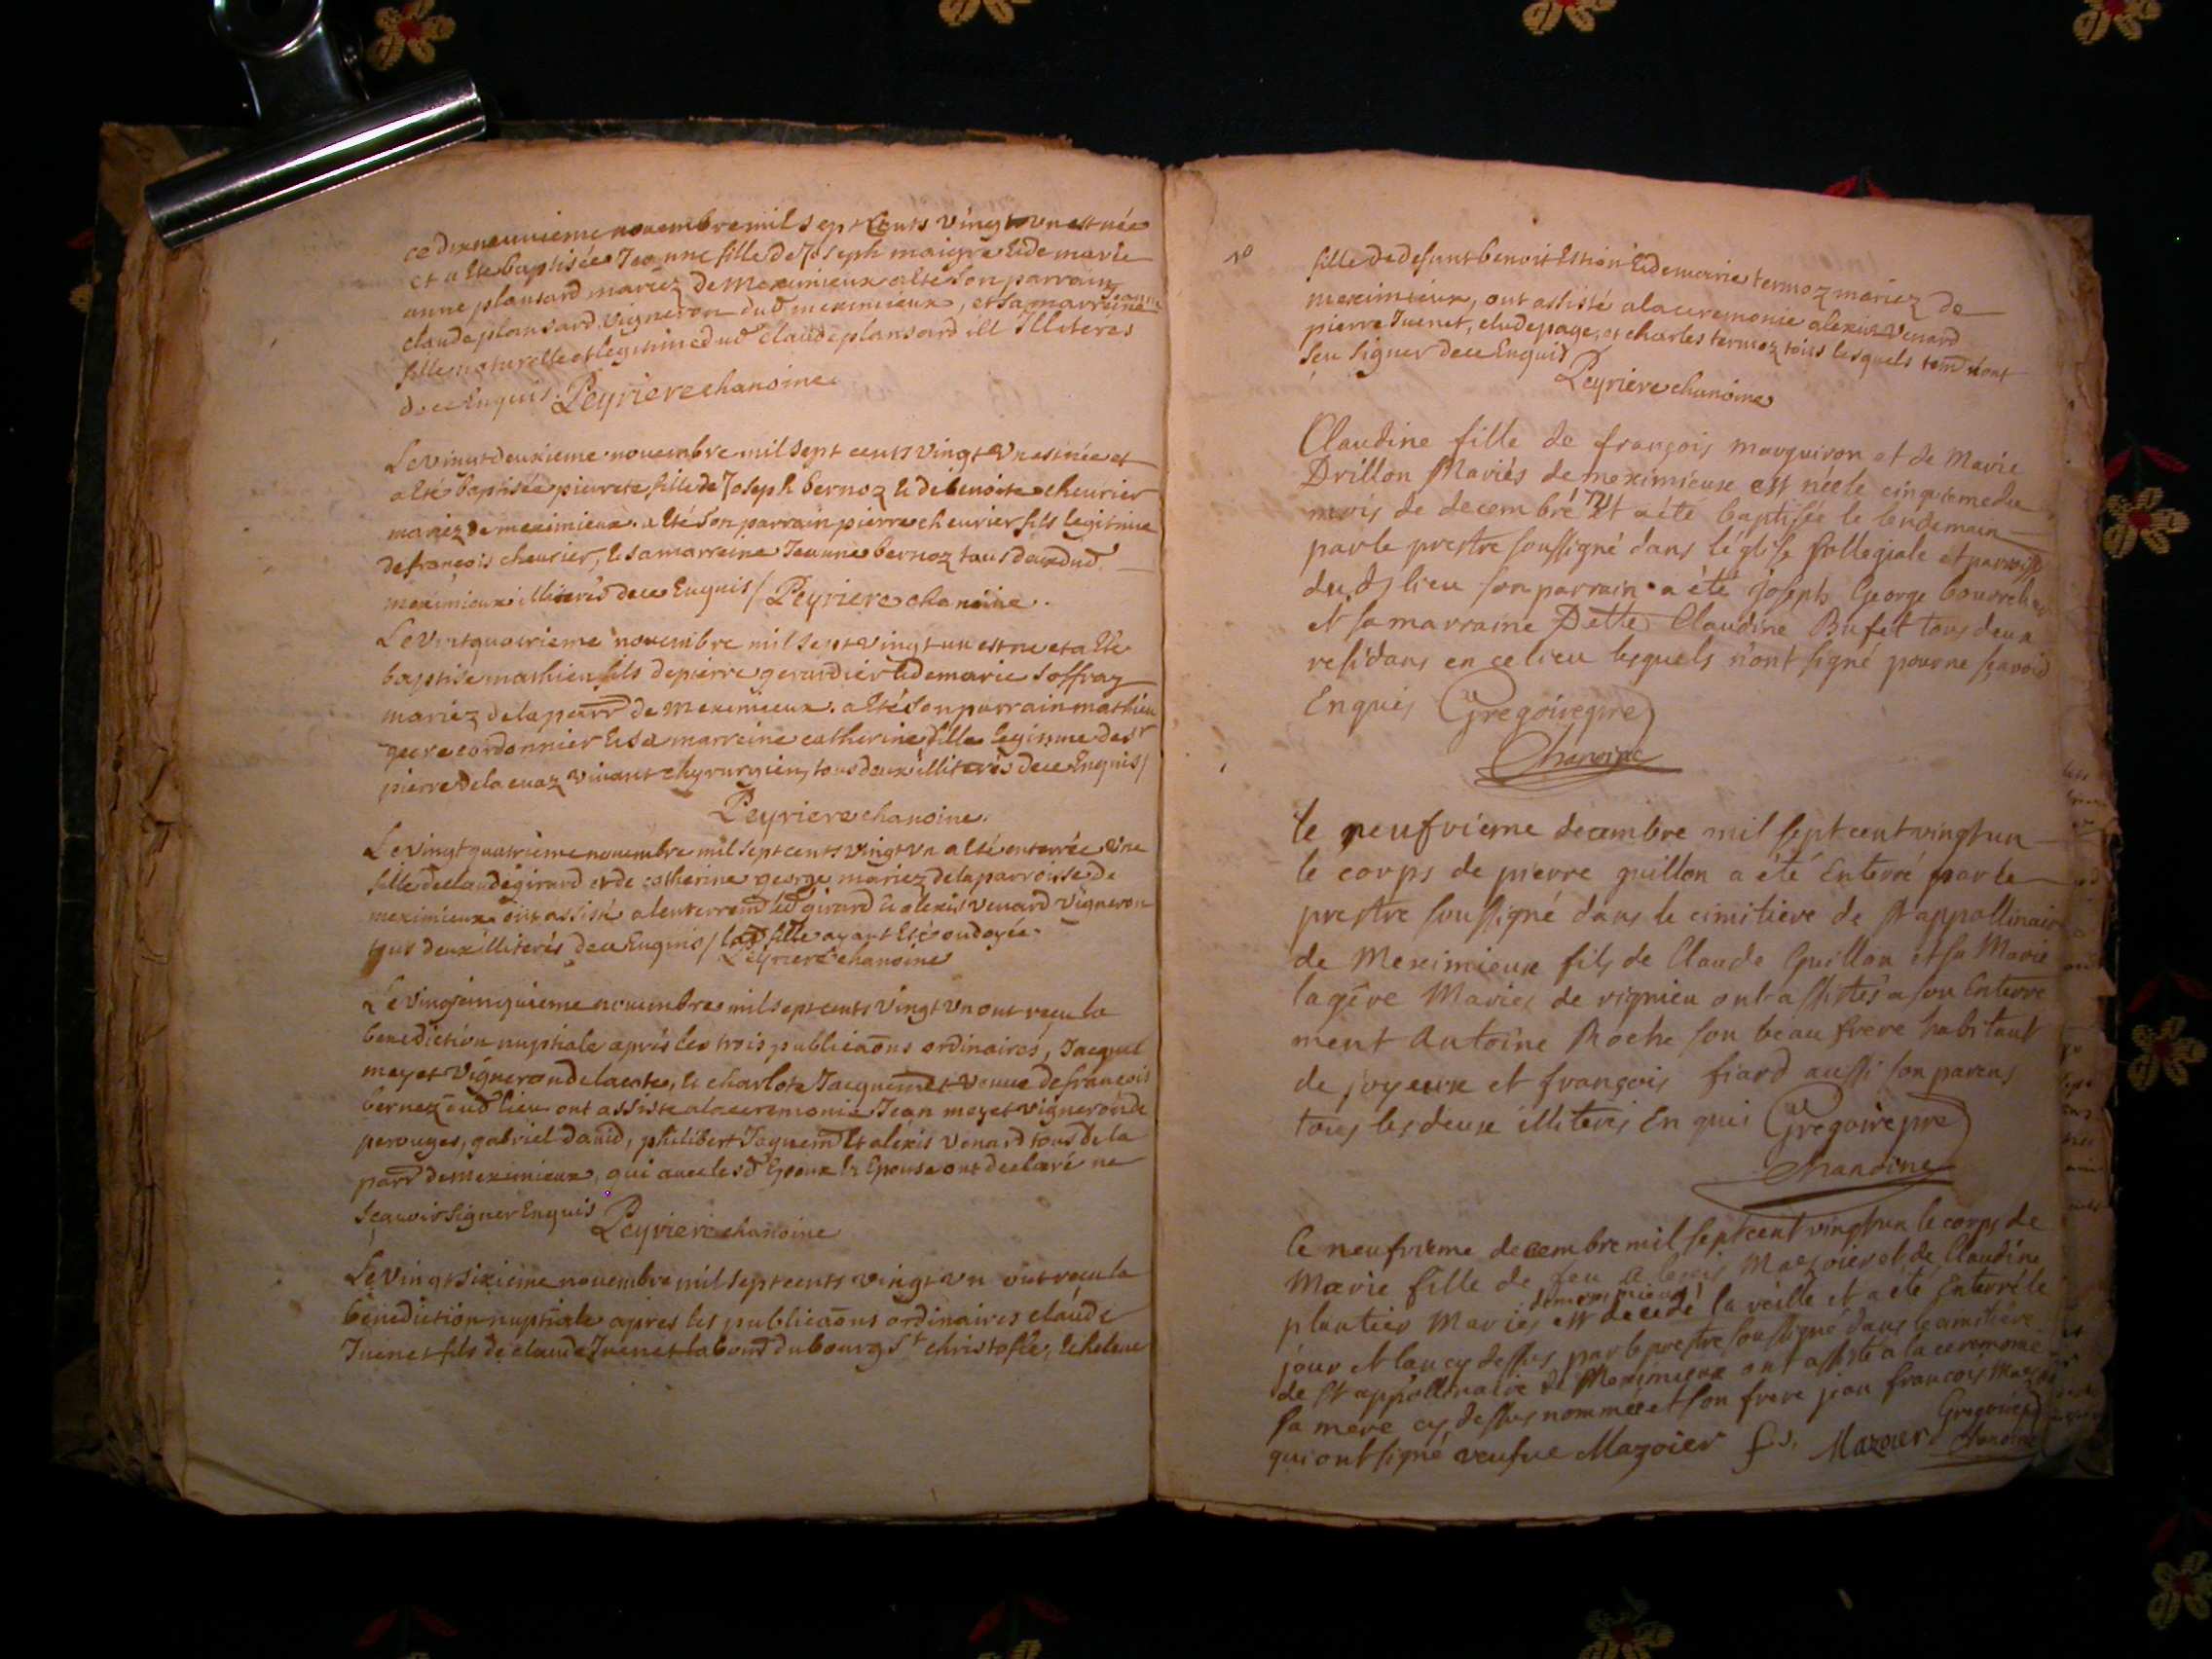 ce dixneuvieme novembre mil sept Cents vingt vn est née
et a êté baptisée Jeanne fille de Joseph maigre & de marie
anne plansard mariez de Meximieux a êté son parrain
claude plansard vigneron dud meximieux, et sa marreine Jeanne
fille naturelle et legitime dud claude plansard ill Illiteres
de ce Enquis. Peyriere chanoine
Le vingtdeuxieme novembre mil sept cents vingt vn est née et
a êté baptisée pierrete fille de Joseph bernoz & de benoite cheurier
mariez de meximieux. a êté son parrain pierre cheurier fils legitime
de françois cheurier, & sa marreine Jeanne bernoz tous deux dud
meximieux illiterés de ce Enquis / Peyriere chanoine.
Le Vintquatrieme novembre mil sept vingt un est ne et a êté
baptise mathieu fils de pierre gerardier & de marie soffray
mariez de la parr de Meximieux. a êté son parrain mathieu
cordonnier & sa marreine catherine fille legitime de sr
pierre delacuaz vivant chyrurgien, tous deux illiterés de ce Enquis /
Peyriere chanoine.
Le vingtquatrieme novembre mil sept cents vingt vn a êté enterrée vne
fille de claude girard et de catherine george mariez de la parroisse de
meximieux ont assisté a l'enterremt led girard & alexis venard vigneron
tous deux illiterés de ce Enquis / lad fille ayant Eté ondoyée.
Peyriere chanoine
Le vingtcinquieme novembre mil sept cents vingt vn ont reçu la
benediction nuptiale aprés les trois publicaons ordinaires, Jacque
meyet vigneron de la coste, & charlote Jacquemet veuve de françois
bernez dud lieu ont assisté a la ceremonie Jean meyet vigneron de
perouges, gabriel david, philibert Jaquemt & alexis venard tous de la
parr de meximieux, qui avec lesd Epoux & Epouse ont declaré ne
sçavoir signer Enquis Peyriere chanoine
Le vingtsixieme novembre mil sept cents vingt vn ont reçu la
benediction nuptiale apres les publicaons ordinaires claude
Juenet fils de claude Juenet labour du bourg St christofle, & helene
fille de defunt benoit Estion & de marie termoz mariez de
meximieux, ont assisté a la ceremonie alexis venard
pierre Juenet, claude page, et charles termoz tous lesquels temd n'ont
sçeu signer de ce Enquis
Peyriere chanoine
Claudine fille de françois marguiron et de Marie
Drillon Mariés de meximieux est née le cinquieme du
mois de decembre 1721 et a été baptisée le lendemain
par le prestre soussigné dans l'église collegiale et parroiss
du d lieu son parrain a été Joseph George bourrelier
et sa marraine Dette Claudine Bufet tous deux
residans en ce lieu lesquels n'ont signé pour ne sçavoir
Enquis Gregoire pre
Chanoine
le neufvieme decembre mil sept cent vingt un
le corps de pierre guillon a été Enterré par le
prestre soussigné dans le cimitiere de St appollinaire
de Meximieux fils de Claude Guillon et sa Marie
lagère Mariés de vignieu ont assistés a son Enterre
ment Antoine Roche son beau frere habitant
de joyeux et françois fiard aussi son parens
tous les deux illiterés Enquis Gregoire pre
Chanoine
le neufvieme decembre mil sept cent vingt un le corps de
Marie fille de feu alexis Mazoier et de Claudine
plantier Mariés de meximieux est decedé la veille et a été Enterré le
jour et lan cy dessus par le prestre soussigné dans le cimitiere
de St appollinaire de Meximieux ont assisté a la ceremonie
sa mere cy dessus nommée et son frere jean françois
qui ont signé veufve Mazoier fs. Mazoier Gregoire pre
Chanoine